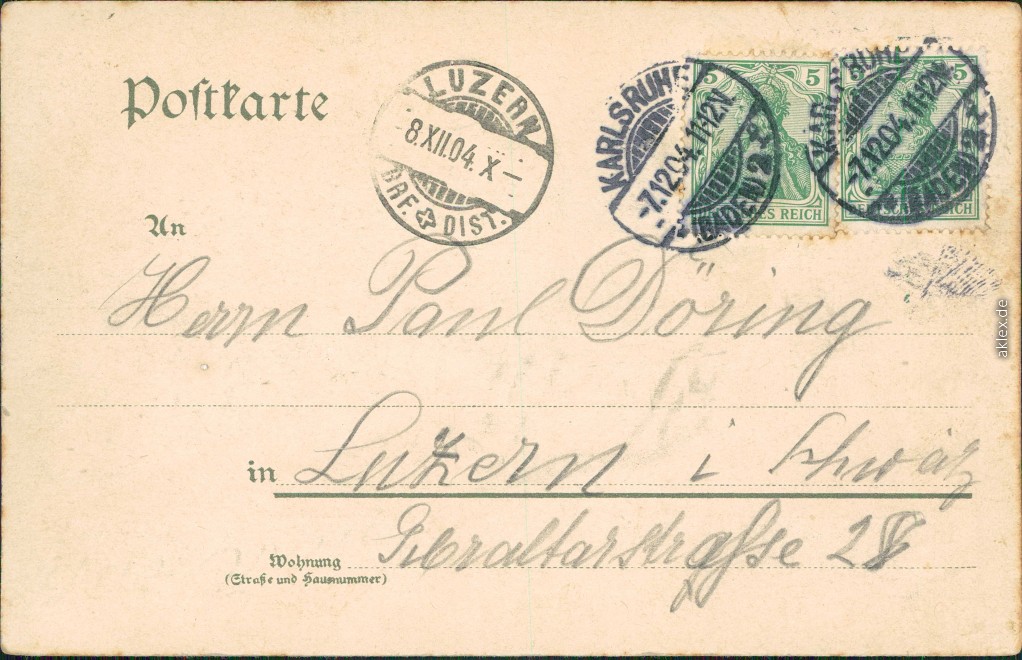 Postkarte
LUZERN
8.XII.04.X–
BRF. DIST.
KARLSRUHE
-7.12.04.11-12N.
(BADEN) 2
5 5
ES REICH
KARLSRUHE
-7.12.04.11-12N.
(BADEN) 2
5
REICH
An
Herrn Paul Döring
in Luzern i Schweiz
Wohnung
(Straße und Hausnummer)
Gibraltarstrasse 28
aklex.de